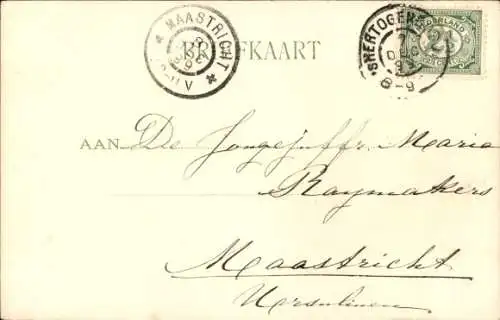 MAASTRICHT
BRIEFKAART
'SHERTOGENB
DEC
8-9
NEDERLAND
2½
AAN De Jongejuffr. Maria
Raymakers
Maastricht
Ursulinen